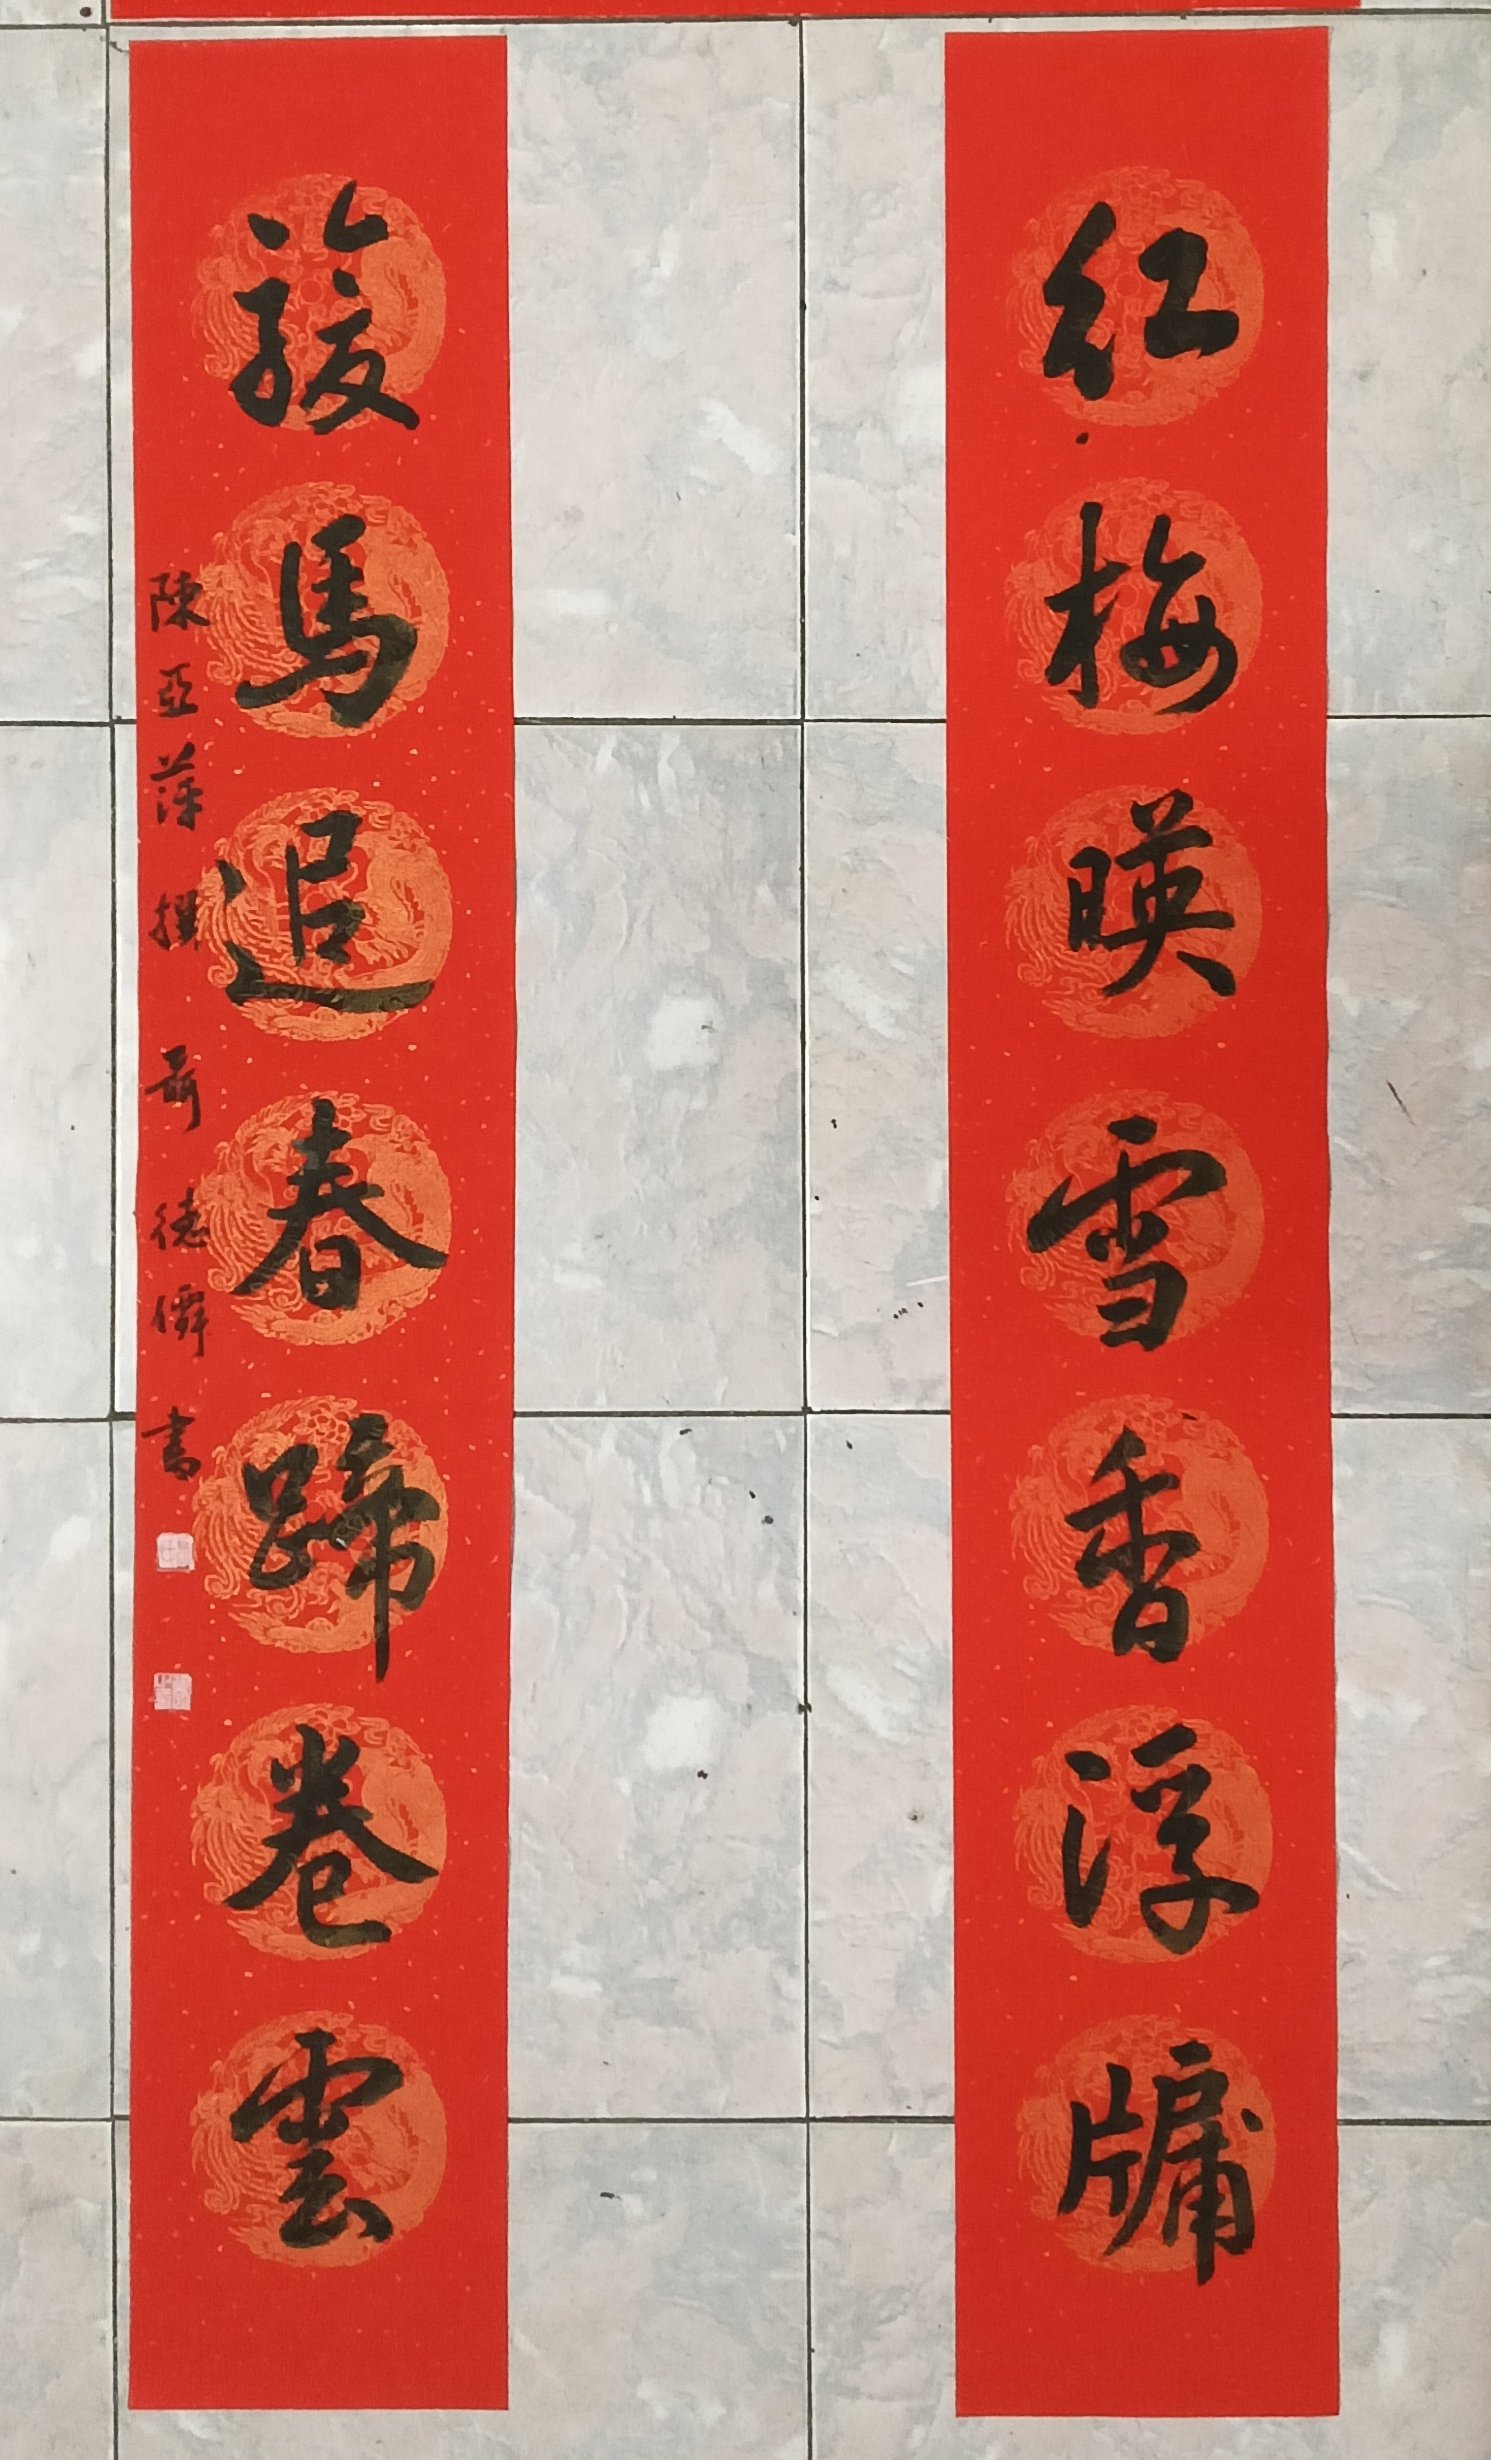 紅梅暎雪香浮牖
駿馬追春蹄卷雲
陳亞萍撰 聶德 書